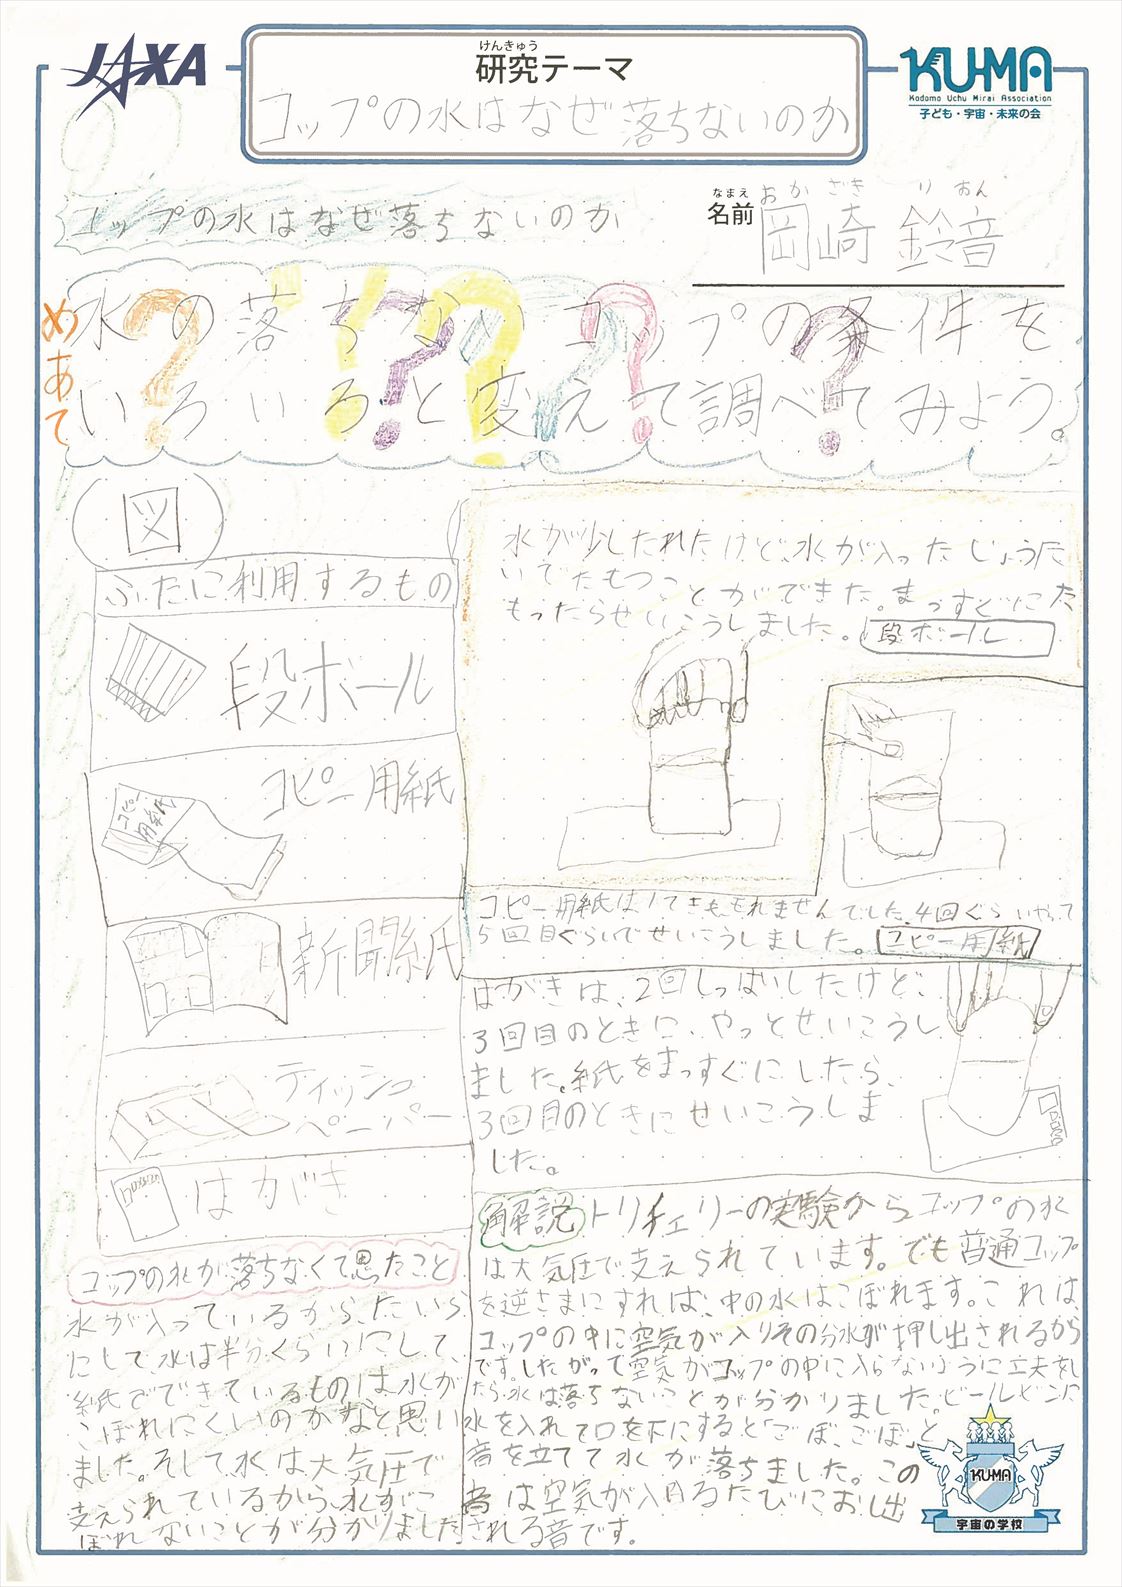 JAXA
けんきゅう
研究テーマ
コップの水はなぜ落ちないのか
KU-MA
Kodomo Uchu Mirai Association
子ども・宇宙・未来の会
コップの水はなぜ落ちないのか
なまえ
名前
おかざき りおん
岡崎 鈴音
めあて
水の落ちないコップの条件を
いろいろと変えて調べてみよう。
図
ふたに利用するもの
段ボール
コピー用紙
コピー用紙
新聞紙
ティッシュ
ペーパー
はがき
水が少したれたけど、水が入ったじょうた
いでたもつことができた。まっすぐにた
もったらせいこうしました。
段ボール
コピー用紙は1てきももれませんでした。4回ぐらいやって
5回目ぐらいでせいこうしました。
コピー用紙
はがきは、2回しっぱいしたけど、
3回目のときに、やっとせいこうし
ました。紙をまっすぐにしたら、
3回目のときにせいこうしま
した。
コップの水が落ちなくて思たこと
水が入っているから、たいら
にして水は半分くらいにして、
紙でできているものは水が
こぼれにくいのかなと思い
ました。そして水は大気圧で
支えられているから、水がこ
ぼれないことが分かりました。
解説
トリチェリーの実験からコップの水
は大気圧で支えられています。でも普通コップ
を逆さまにすれば、中の水はこぼれます。これは、
コップの中に空気が入りその分水が押し出されるから
です。したがって空気がコップの中に入らないように工夫をし
たら水は落ちないことが分かりました。ビールビンに
水を入れて口を下にすると「ごぼ、ごぼ」と
音を立てて水が落ちました。この
音は空気が入るたびにおし出
される音です。
KU-MA
宇宙の学校